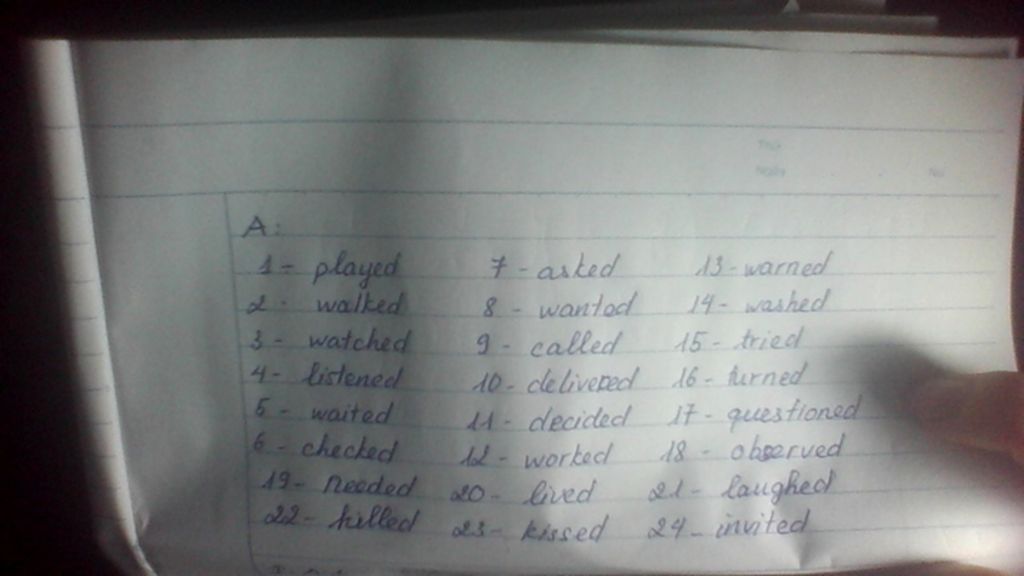 A:
1 - played 7 - asked 13 - warned
2 - walked 8 - wanted 14 - washed
3 - watched 9 - called 15 - tried
4 - listened 10 - delivered 16 - turned
5 - waited 11 - decided 17 - questioned
6 - checked 12 - worked 18 - observed
19 - needed 20 - lived 21 - laughed
22 - killed 23 - kissed 24 - invited